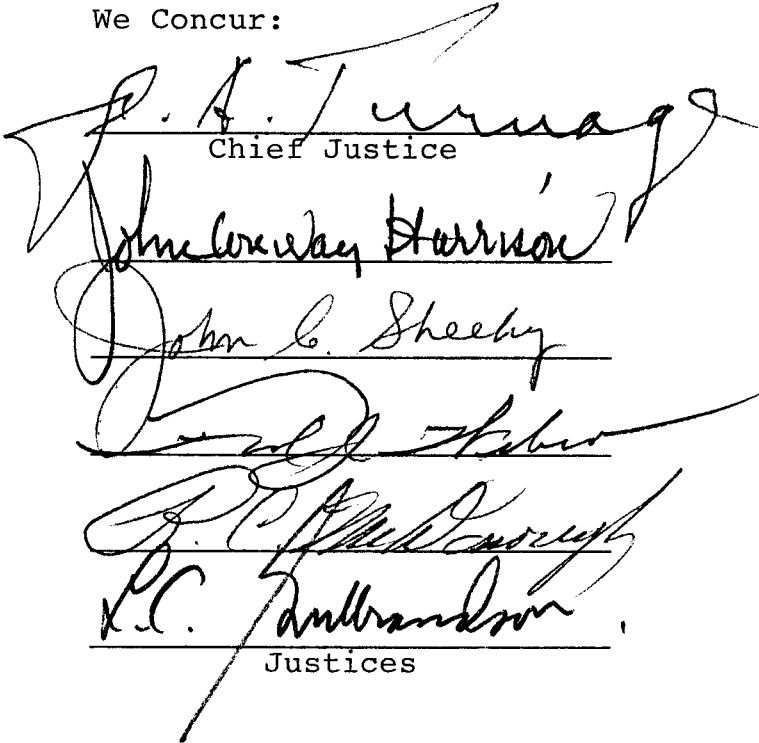 We Concur:
J. A. Turnage
Chief Justice
John Conway Harrison
John C. Sheehy
R. C. McDonough
L. C. Gulbrandson
Justices